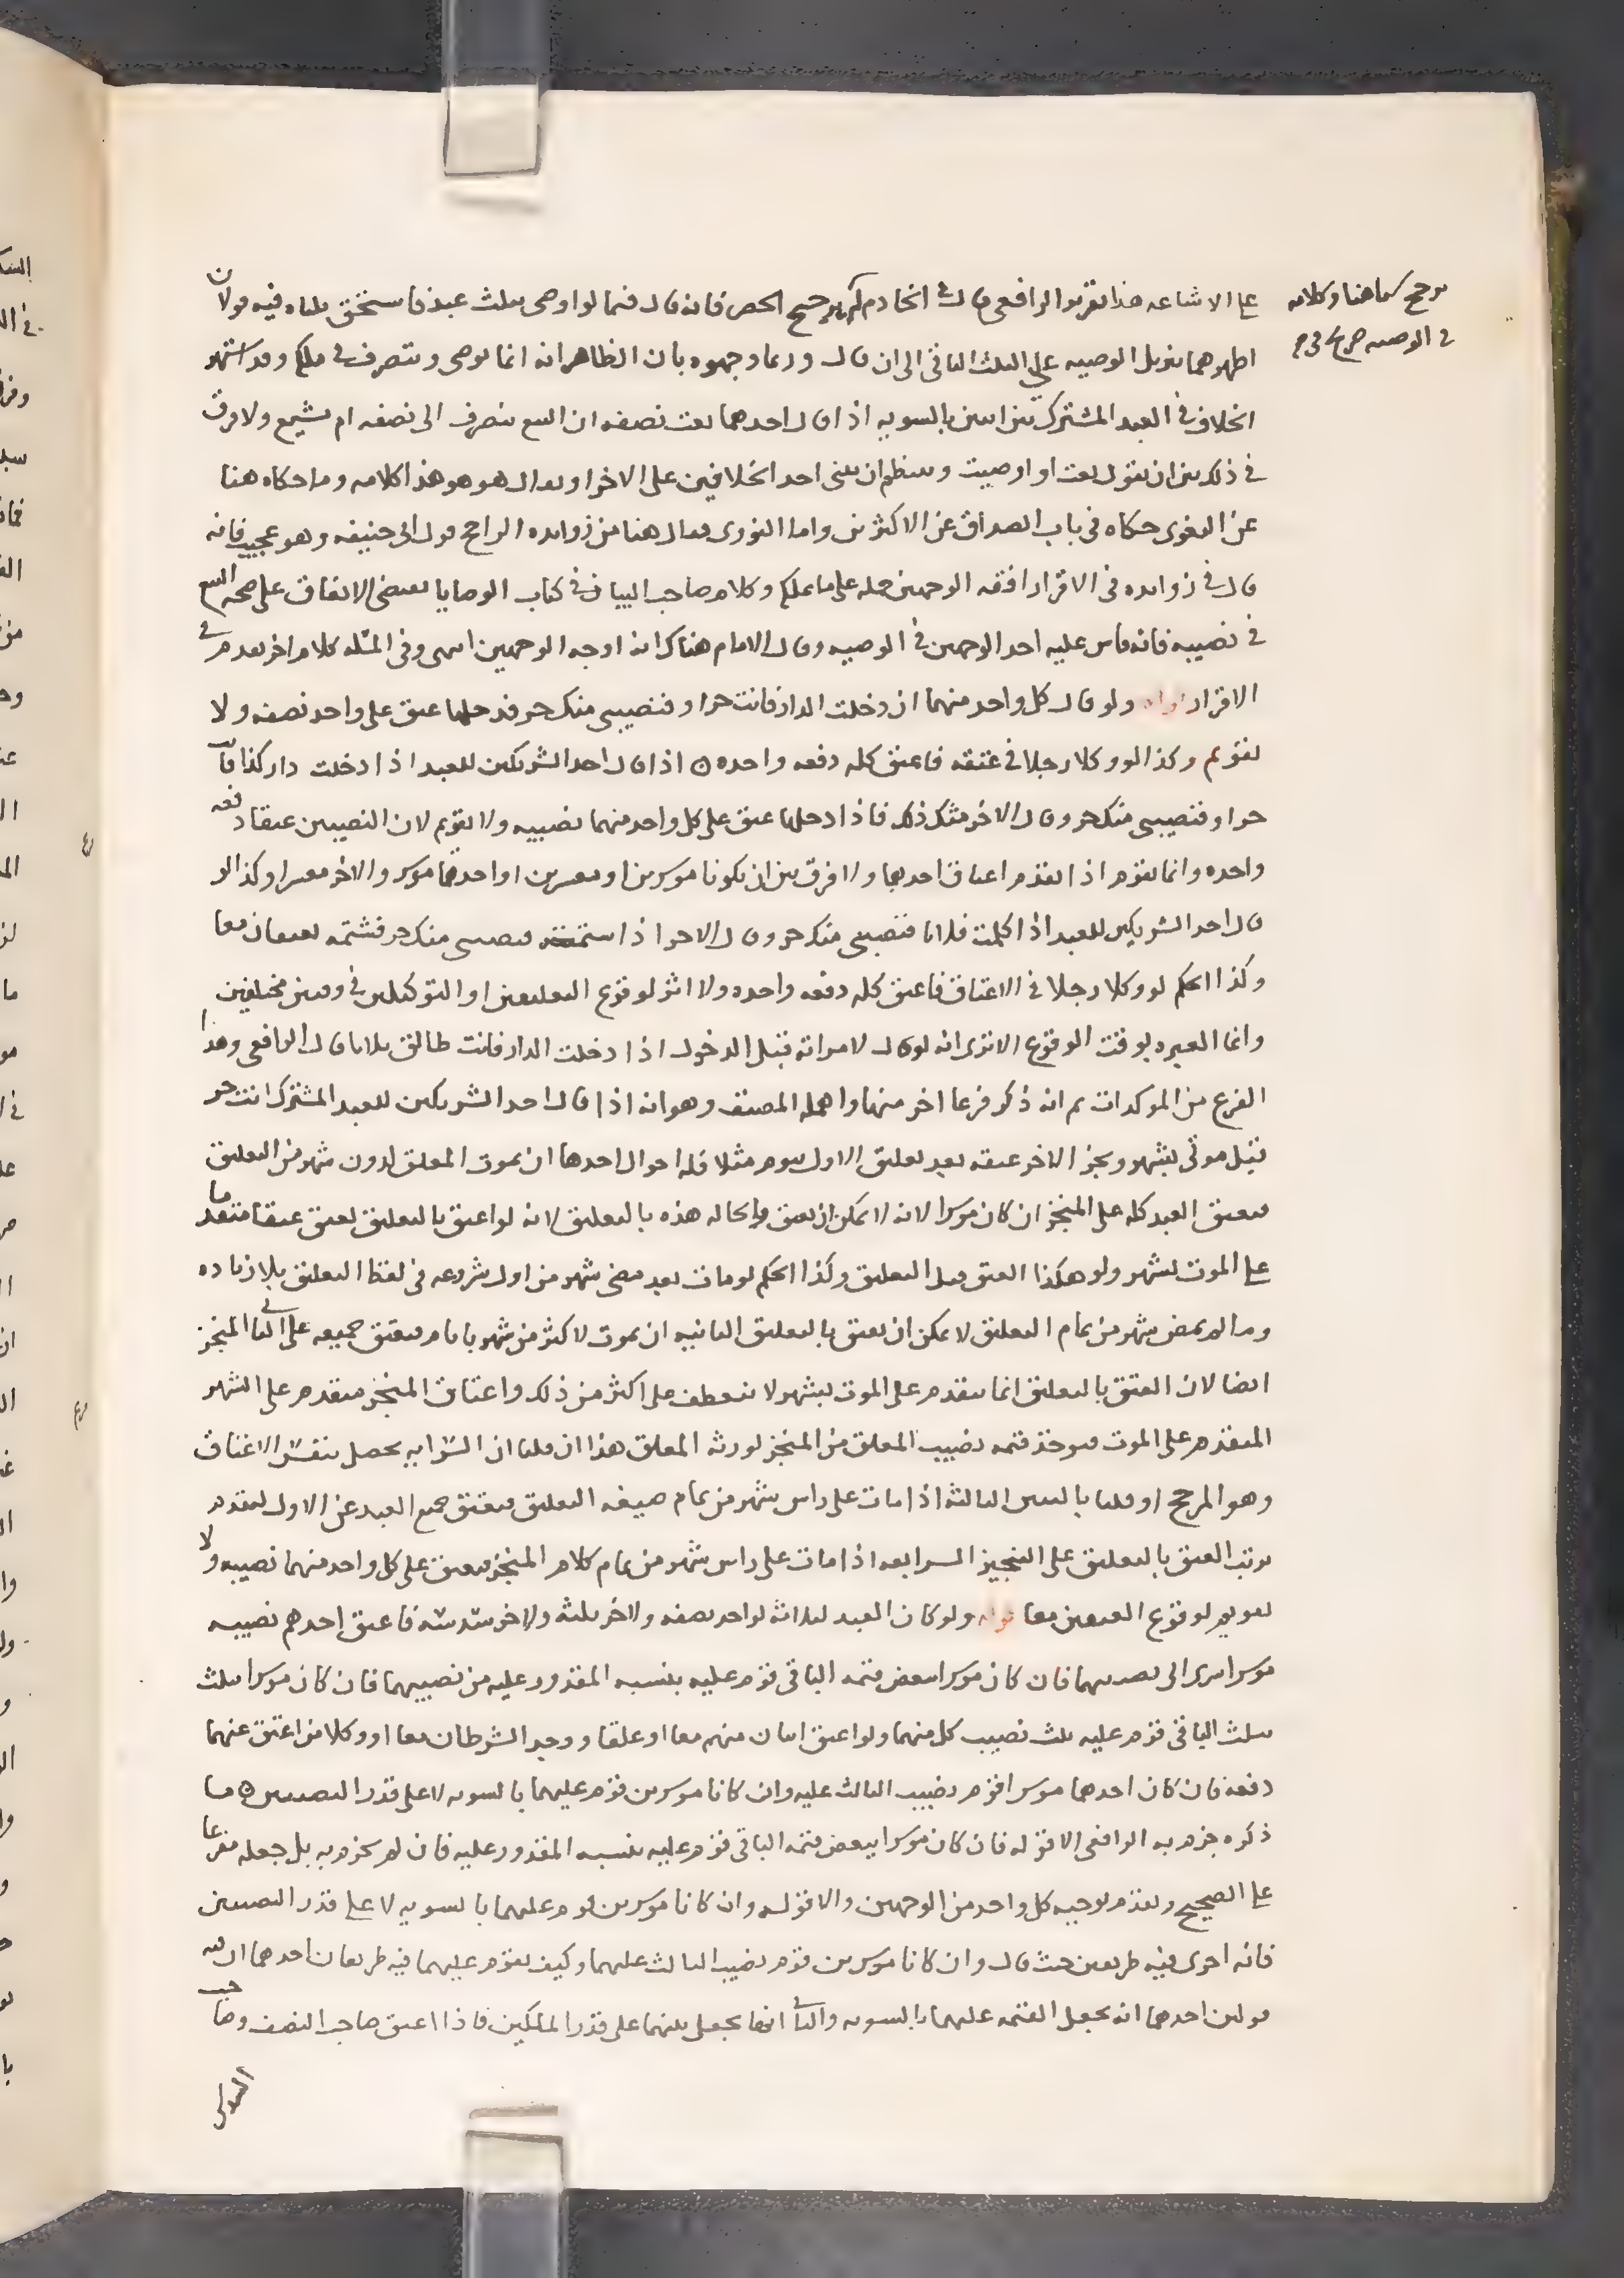 على الاشاعه هذا تقرير الرافعي قال في الخادم لم يرجح الحصر فانه قال فيما لو اوصى بثلث عبد فاستحق ثلثاه فيه قولان
اظهرهما تنزيل الوصيه على الثلث الباقي الى ان قال وربما وجهوه بان الظاهر انه انما يوصى ويتصرف في ملكه وقد اشتهر
الخلاف في العبد المشترك بين اثنين بالسويه اذا قال احدهما بعت نصفه ان البيع ينصرف الى نصفه ام يشيع ولا فرق
في ذلك بين ان يقول بعت او اوصيت وينتظم ان يبنى احد الخلافين على الاخر او يقال هو هو هذا كلامه وما حكاه هنا
عن البغوى حكاه في باب الصداق عن الاكثرين واما النووى فقال هنا من زوايده الراجح قول ابى حنيفه وهو عجيب فانه
قال في زوايده في الاقرار افقه الوجهين حمله على ما يملكه وكلام صاحب البيان في كتاب الوصايا يقتضى الاتفاق على صحه البيع
في نصيبه فانه قاس عليه احد الوجهين في الوصيه وقال الامام هناك انه اوجه الوجهين انتهى وفى المسله كلام اخر تقدم في
الاقرار قوله ولو قال كل واحد منهما ان دخلت الدار فانت حر او فنصيبى منك حر فدخلها عتق على واحد نصفه ولا
تقويم وكذا لو وكلا رجلا في عتقه فاعتق كله دفعه واحده ه اذا قال احد الشريكين للعبد اذا دخلت دار كذا فانت
حر او فنصيبى منك حر وقال الاخر مثل ذلك فاذا دخلها عتق على كل واحد منهما نصيبه ولا تقويم لان النصيبين عتقا دفعه
واحده وانما يقوم اذا تقدم اعتاق احدهما ولا فرق بين ان يكونا موسرين او معسرين او احدهما موسر والاخر معسر وكذا لو
قال احد الشريكين للعبد اذا كلمت فلانا فنصيبى منك حر وقال الاخر اذا شتمته فنصيبى منك حر فشتمه يعتقان معا
وكذا الحكم لو وكلا رجلا في الاعتاق فاعتق كله دفعه واحده ولا اثر لوقوع التعليقين او التوكيلين في وقتين مختلفين
وانما العبره بوقت الوقوع الا ترى انه لو قال لامراته قبل الدخول اذا دخلت الدار فانت طالق ثلاثا قال الرافعى وهذا
الفرع من المولدات ثم انه ذكر فرعا اخر منها واهمله المصنف وهو انه اذا قال احد الشريكين للعبد المشترك انت حر
قبل موتى بشهر ونجز الاخر عتقه بعد تعليق الاول بيوم مثلا فله احوال احدها ان يموت المعلق لدون شهر من التعليق
فيعتق العبد كله على المنجز ان كان موسرا لانه لا يمكن ان يعتق والحاله هذه بالتعليق لانه لو اعتق بالتعليق لعتق عتقا متقدما
على الموت بشهر ولو هكذا العتق قبل التعليق وكذا الحكم لو مات بعد مضى شهر من اول شروعه في لفظ التعليق بلا زياده
وما لم يمض شهر من تمام التعليق لا يمكن ان يعتق بالتعليق الثانيه ان يموت لاكثر من شهر بايام فيعتق جميعه على الثاني المنجز
ايضا لان العتق بالتعليق انما يتقدم على الموت بشهر لا ينعطف على اكثر من ذلك واعتاق المنجز متقدم على الشهر
المتقدم على الموت فيوخذ قيمه نصيب المعلق من المنجز لورثه المعلق هذا ان قلنا ان السرايه تحصل بنفس الاعتاق
وهو المرجح او قلنا بالتبين الثالثه اذا مات على راس شهر من تمام صيغه التعليق فيعتق جميع العبد عن الاول لتقدم
ترتب العتق بالتعليق على التنجيز الرابعه اذا مات على راس شهر من تمام كلام المنجز فيعتق على كل واحد منهما نصيبه ولا
تقويم لوقوع العتقين معا قوله ولو كان العبد لثلاثه لواحد نصفه ولاخر ثلثه ولاخر سدسه فاعتق احدهم نصيبه
موسرا سرى الى نصيبيهما فان كان موسرا ببعض قيمه الباقى قوم عليه بنسبه المقدور عليه من نصيبيهما فان كان موسرا بثلث
بثلث الباقى قوم عليه ثلث نصيب كل منهما ولو اعتق اثنان منهم معا او علقا ووجد الشرطان معا او وكلا من اعتق عنهما
دفعه فان كان احدهما موسرا قوم نصيب الثالث عليه وان كانا موسرين قوم عليهما بالسويه لا على قدر النصيبين ه ما
ذكره جزم به الرافعى الا قوله فان كان موسرا ببعض قيمه الباقى قوم عليه بنسبه المقدور عليه فان لم يجزم به بل جعله مفرعا
على الصحيح وتقدم توجيه كل واحد من الوجهين والا قوله وان كانا موسرين قوم عليهما بالسويه لا على قدر النصيبين
فانه اجرى فيه طريقين حيث قال وان كانا موسرين قوم نصيب الثالث عليهما وكيف يقوم عليهما فيه طريقان احدهما ان فيه
قولين احدهما انه تجعل القيمه عليهما بالسويه والثاني انها تجعل بينهما على قدر الملكين فاذا اعتق صاحب النصف وصاحب
السدس
يرجح كما هنا وكلامه
في الوصيه